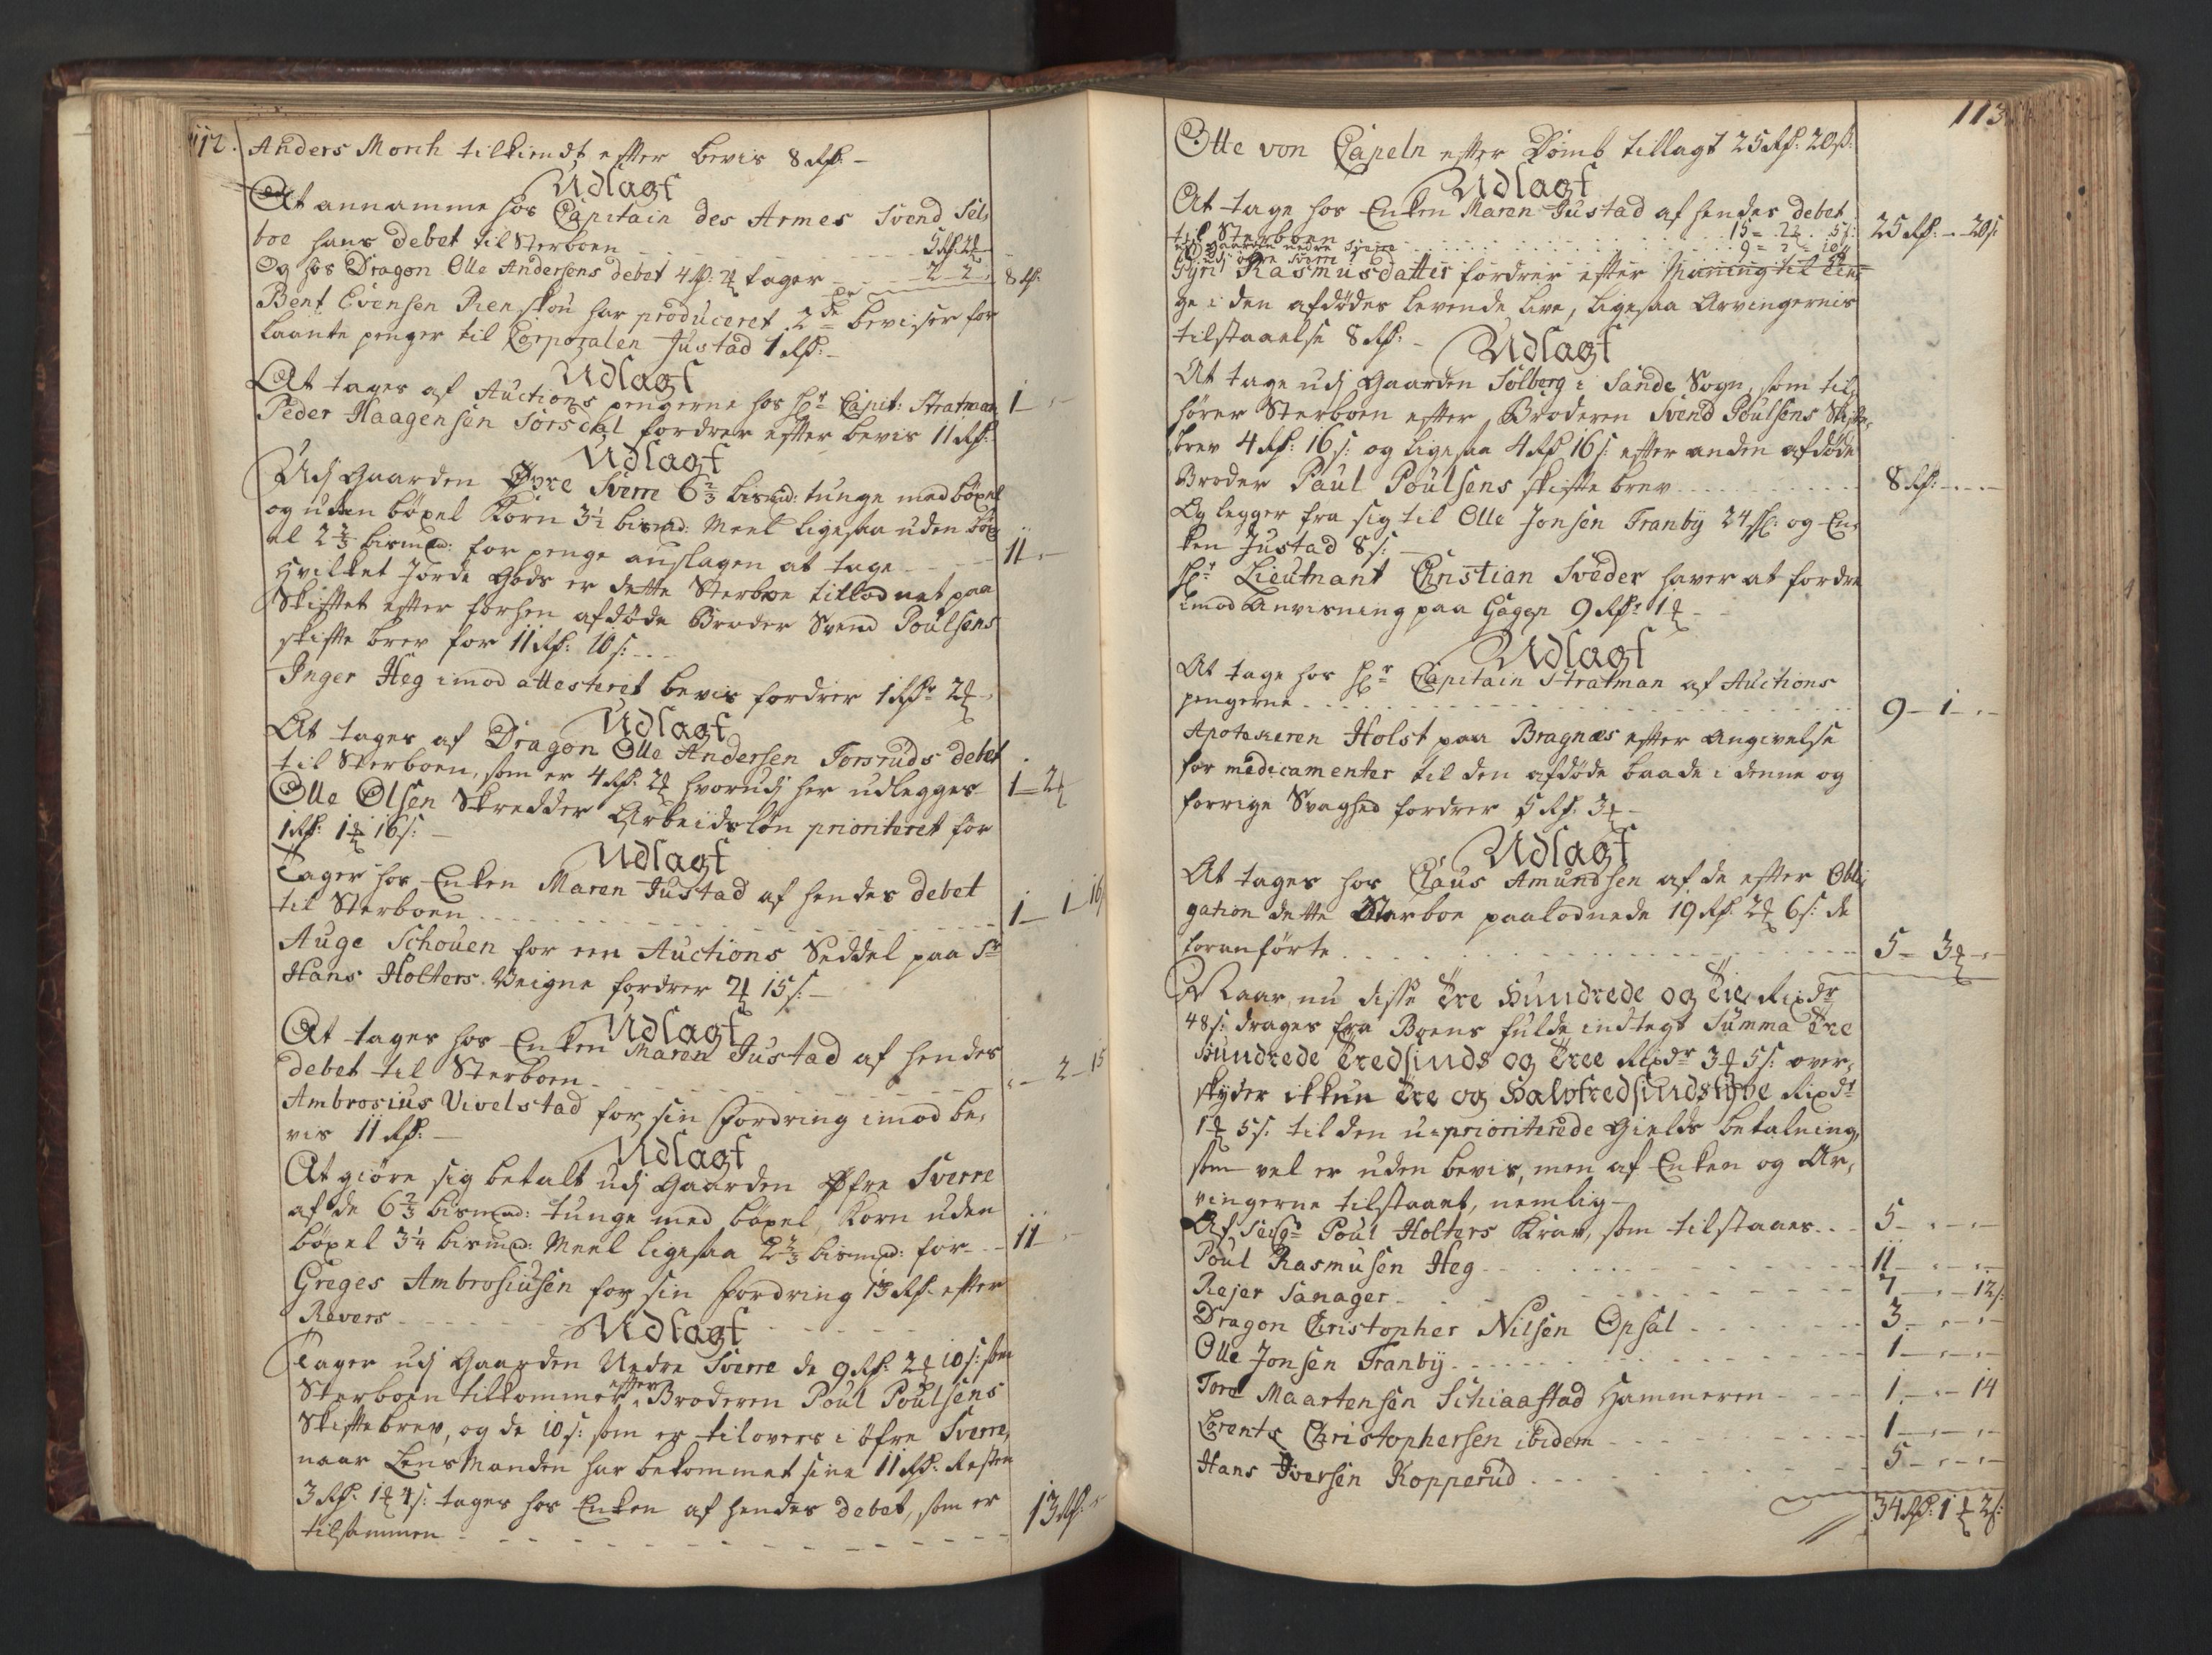 112.
Anders Morch tilkiendt efter bevis 8 Rd: -
Udlagt
At annamme hos Capitain des Armes Svend Sel-
boe hans debet til Sterboen
Og hos Dragon Olle Andersens debet 4 Rd: 2 ort tager 2 2 8 Rd:
Bent Evensen Renskou har produceret 2de beviser for
laante penger til Corporalen Justad 1 Rd: -
Udlagt
At tages af Auctions pengerne hos Hr Capit: Stratman 1 -
Peder Haagensen Sørsdal fordrer efter bevis 11 Rd:
Udlagt
Udj Gaarden Øvre Sverre 6 2/3 bismd: tunge med böxel
og uden böxel Korn 3 1/4 bismd: Meel ligesaa uden böx-
el 2 2/3 bismd: for penge anslagen at tage - - - 11 -
Hvilket Jorde Gods er dette Sterboe tillodnet paa
Skifftet efter forhen afdøde Broder Svend Poulsens
skifte brev for 11 Rd: 10 s: - - -
Inger Heg imod attesteret bevis fordrer 1 Rd: 2 ort -
Udlagt
At tages af Dragon Olle Andersen Torsruds debet
til Sterboen, som er 4 Rd: 2 ort hvorudj her udlegges 1 - 2 ort
Olle Olsen Skredder Arbeidsløn prioriteret for
1 Rd: 1 ort 16 s: -
Udlagt
Tager hos Enken Maren Justad af hendes debet
til Sterboen - - - 1 - 1 - 16
Auge Schouen for een Auctions Seddel paa Sr
Hans Holters Veigne fordrer 2 ort 15 s: -
Udlagt
At tages hos Enken Maren Justad af hendes
debet til Sterboen - - - - 2 - 15
Ambrosius Vivelstad for sin fordring imod be-
vis 11 Rd: -
Udlagt
At giøre sig betalt udj Gaarden Øfre Sverre
af de 6 2/3 bismd: tunge med böxel, Korn uden
böxel 3 1/4 bismd: Meel ligesaa 2 2/3 bismd: for - - 11 -
Greges Ambrosiusen for sin fordring 13 Rd: efter
Revers - - -
Udlagt
Tager udj Gaarden Nedre Sverre de 9 Rd: 2 ort 10 s: som
Sterboen tilkommer efter Broderen Poul Poulsens
Skiftebrev, og de 10 s: som er tilovers i øfre Sverre,
naar LensManden har bekommet sine 11 Rd: Resten
3 Rd: 1 ort 4 s: tages hos Enken af hendes debet, som er
tilsammen - - - 13 Rd: -
113
Olle von Capeln efter Domb tillagt 25 Rd: 20 s:
Udlagt
At tage hos Enken Maren Justad af hendes debet
til Sterboen - - - 15 = 2 ort 5 s: 25 Rd: - 20 s
Gaarden nedre Sverre
øvre Sverre
Gyri Rasmusdatter fordrer efter
ge i den afdødes levende live, ligesaa Arvingernis
tilstaaelse 8 Rd: -
Udlagt
At tage udj Gaarden Solberg i Sande Sogn, som til-
hører Sterboen efter Broderen Svend Poulsens Skifte-
brev 4 Rd: 16 s: og ligesaa 4 Rd 16 s: efter anden afdøde
Broder Paul Poulsens skifte brev - - - 8 Rd: - -
Og legger fra sig til Olle Jonsen Tranby 24 s: og En-
ken Justad 8 s: -
Hr Lieutnant Christian Sveder haver at fordre
imod Anvisning paa Gagen 9 Rd: 1 ort -
Udlagt
At tage hos Hr Capitain Stratman af Auctions
pengerne - - - 9 - 1 - -
Apotekeren Holst paa Bragnæs efter angivelse
for medicamenter til den afdøde baade i denne og
forrige Svaghed fordrer 5 Rd: 3 ort -
Udlagt
At tages hos Claus Amundsen af de efter Obli-
gation dette Sterboe paalodnede 19 Rd: 2 ort 6 s: de
foranførte - - - 5 - 3 ort -
Naar nu disse Tre Hundrede og Tie Rixdr
48 s: drages fra Boens fulde indtegt Summa Tre
Hundrede Tredsinds og Tree Rixdr 3 ort 5 s: over-
skyder ikkun Tre og Halvtredsindstyve Rixdr
1 ort 5 s. til den u-prioriterede Gields betalning,
som vel er uden bevis, men af Enken og Ar-
vingerne tilstaaet, nemlig -
Af Poul Holters Krav, som tilstaaes - - 5 - - -
Poul Rasmusen Heg - - - 11 - - -
Rejer Sanager - - - 7 - - 12 s:
Dragon Christopher Nilsen Opsal - - - 3 - - -
Olle Jonsen Tranby - - - 1 - - -
Tore Maartensen Schiaastad Hammeren - - - 1 - - 14
Lorents Christophersen ibidem - - - 1 - - -
Hans Iversen Kopperud - - - 5 - - -
34 Rd: 1 ort 2 s: